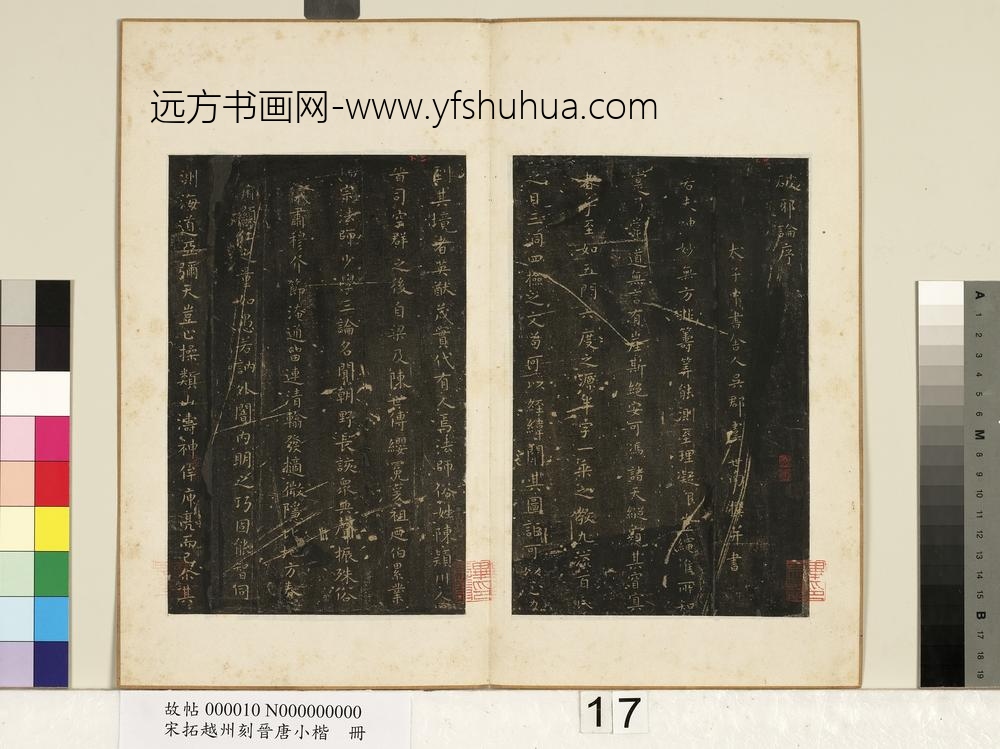 远方书画网-www.yfshuhua.com
破邪論序
太子中書舍人吳郡 世南撰并書
若夫神妙無方非籌筭能測至理凝 繩準所知
常道無言有崖斯絕安可馮諸天縱窺其窅冥
者乎至如五門六度之源半字一乘之教九流百氏
之目三洞四檢之文苟可以經緯闡其圖詎可以
到其境者英猷茂實代有人焉法師俗姓陳潁川人
首司空群之後自梁及陳世傳纓冕爰祖及伯累業
儒宗法師少學三論名聞朝野長該眾典聲振殊俗
威肅穆介節淹通留連清翰發擿微隱比地方春
藏用
仕量如愚若訥外闇內明之巧固能智同
測海道亞彌天豈止操類山濤神侔庾亮而已 其
故帖 000010 N000000000
宋拓越州刻晉唐小楷 冊
17
A 1 2 3 4 5 6 M 8 9 10 11 12 13 14 15 B 17 18 19